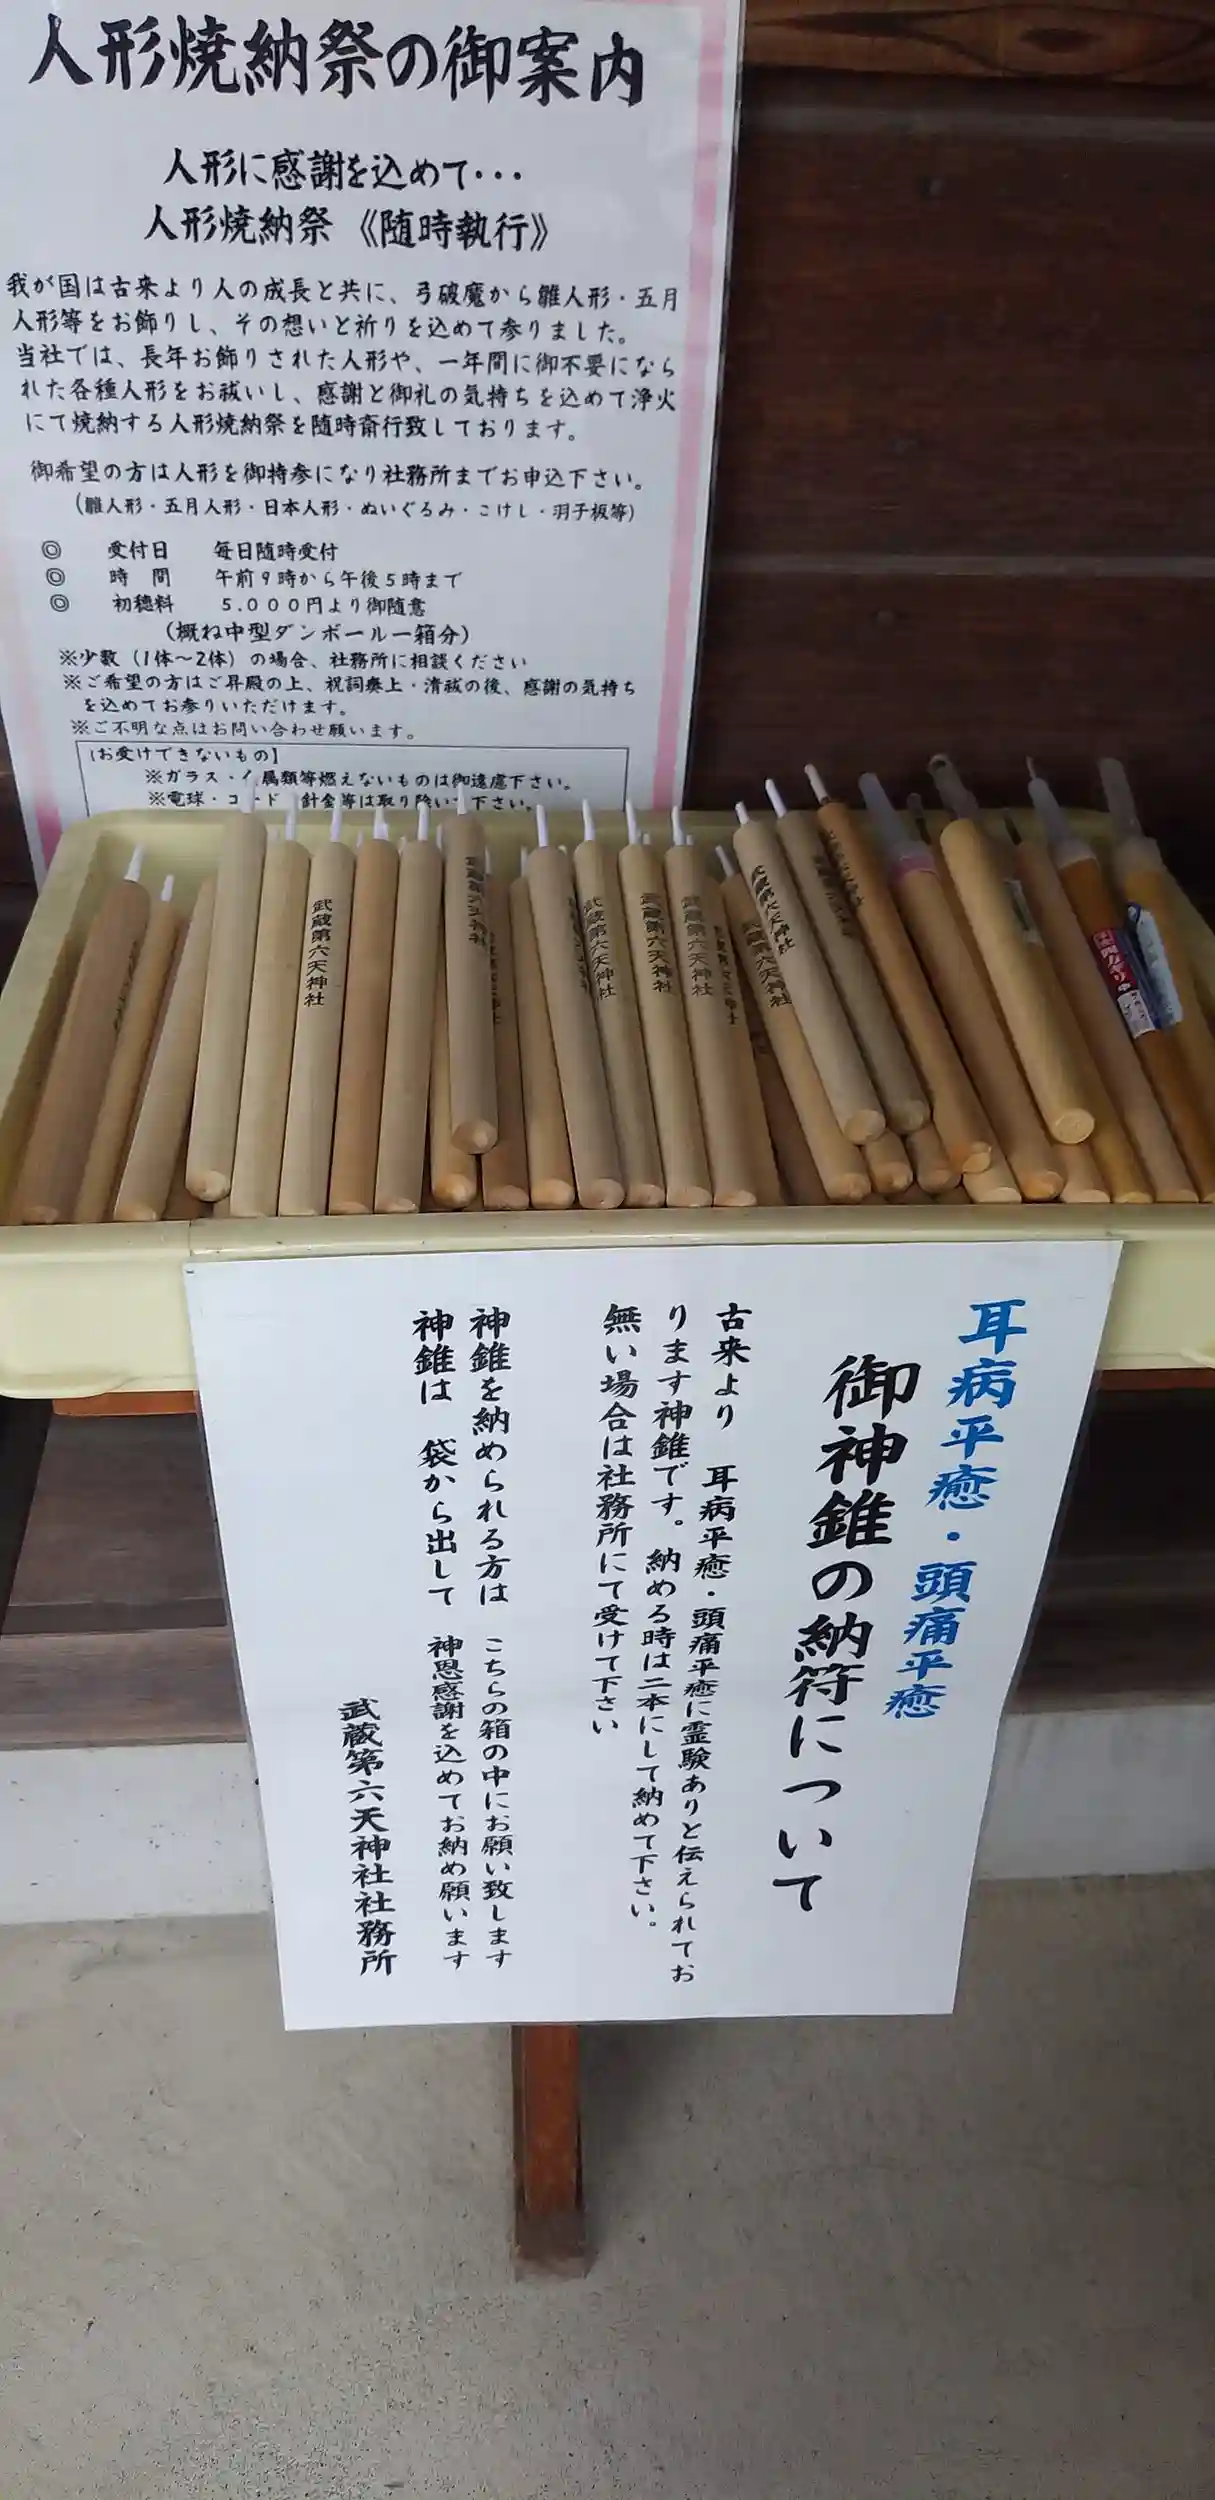 人形焼納祭の御案内
人形に感謝を込めて・・・
人形焼納祭《随時執行》
我が国は古来より人の成長と共に、弓破魔から雛人形・五月
人形等をお飾りし、その想いと祈りを込めて参りました。
当社では、長年お飾りされた人形や、一年間に御不要になら
れた各種人形をお祓いし、感謝と御礼の気持ちを込めて浄火
にて焼納する人形焼納祭を随時斎行致しております。
御希望の方は人形を御持参になり社務所までお申込下さい。
(雛人形・五月人形・日本人形・ぬいぐるみ・こけし・羽子板等)
◎ 受付日 毎日随時受付
◎ 時 間 午前9時から午後5時まで
◎ 初穂料 5.000円より御随意
(概ね中型ダンボール一箱分)
※少数(1体〜2体)の場合、社務所に相談ください
※ご希望の方はご昇殿の上、祝詞奏上・清祓の後、感謝の気持ち
を込めてお参りいただけます。
※ご不明な点はお問い合わせ願います。
[お受けできないもの]
※ガラス・ 属類等燃えないものは御遠慮下さい。
※電球・コード 針金等は取り除いて下さい。
武蔵第六天神社
武蔵第六天神社
武蔵第六天神社
武蔵第六天神社
武蔵第六天神社
武蔵第六天神社
武蔵第六天神社
耳病平癒・頭痛平癒
御神錐の納符について
古来より 耳病平癒・頭痛平癒に霊験ありと伝えられてお
ります神錐です。納める時は二本にして納めて下さい。
無い場合は社務所にて受けて下さい
神錐を納められる方は こちらの箱の中にお願い致します
神錐は 袋から出して 神恩感謝を込めてお納め願います
武蔵第六天神社社務所